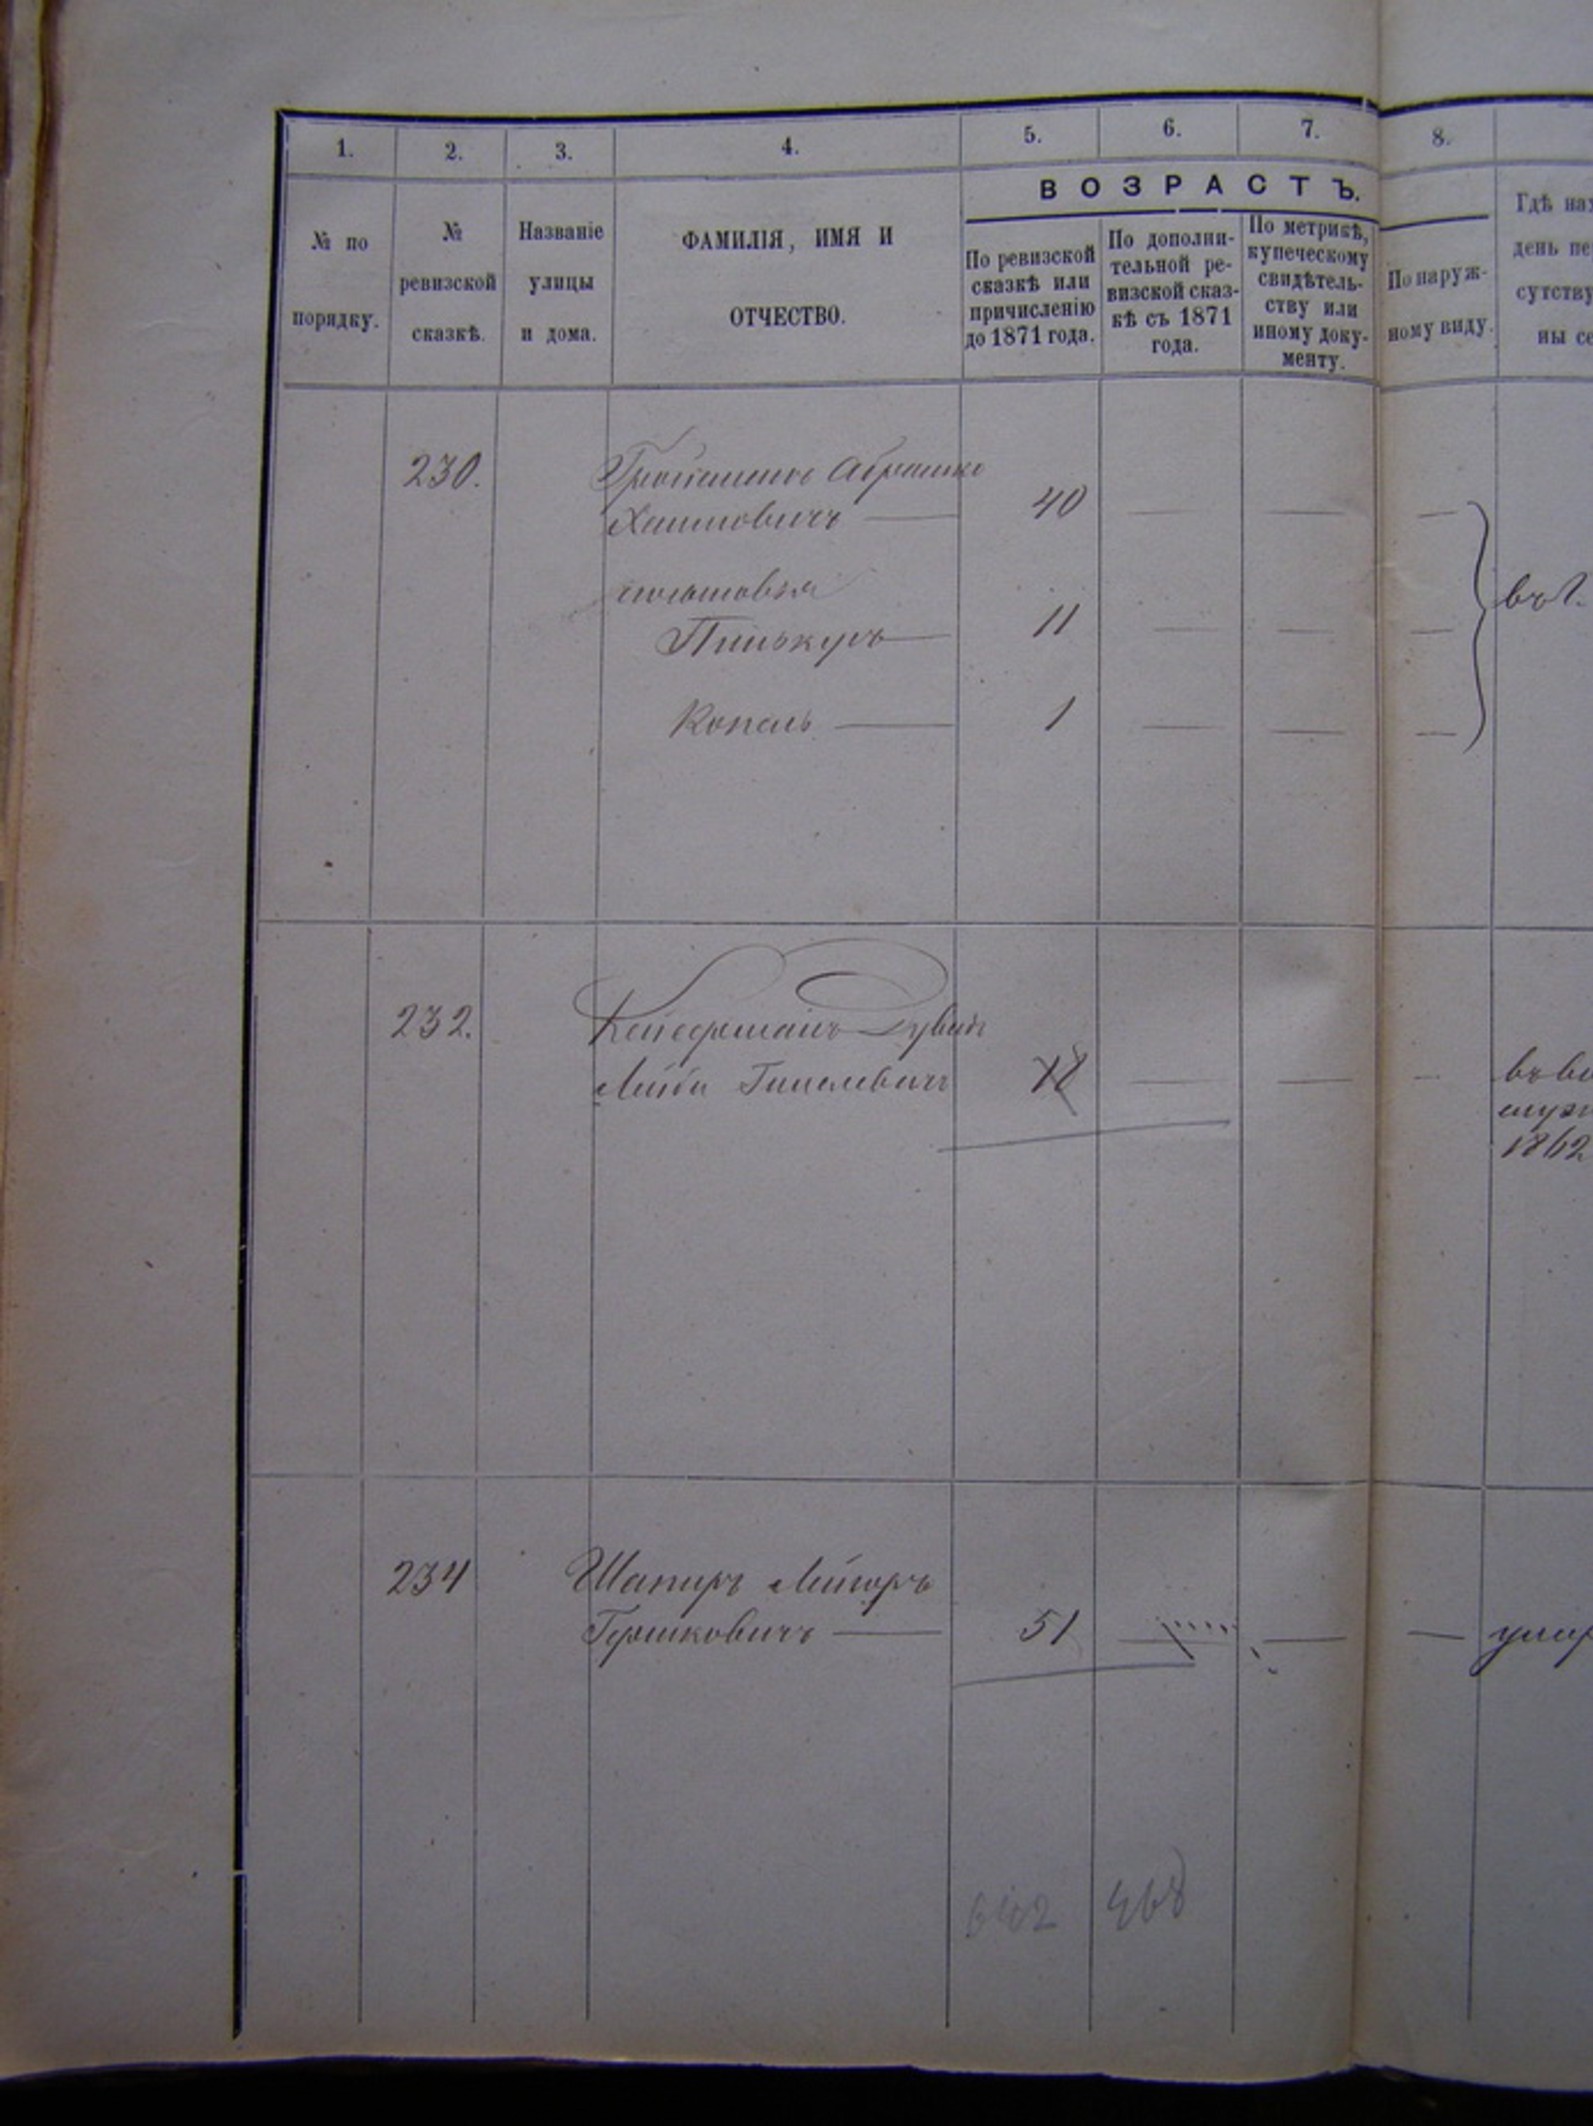 1. 2. 3. 4. 5. 6. 7. 8.
ВОЗРАСТЪ.
№ по
порядку.
№
ревизской
сказкѣ.
Названіе
улицы
и дома.
ФАМИЛІЯ, ИМЯ И
ОТЧЕСТВО.
По ревизской
сказкѣ или
причисленію
до 1871 года.
По дополни-
тельной ре-
визской сказ-
кѣ съ 1871
года.
По метрикѣ,
купеческому
свидѣтель-
ству или
иному доку-
менту.
По наруж-
ному виду.
Гдѣ нах
день пе
сутству
ны се
230. Абрамко
Хаимовичъ — 40 — — —
11 — — —
Копель — 1 — — — въ г.
232. Дувидъ
Лейба 18 — — —
1862
234 Шапиръ Лейзоръ
Гершковичъ — 51 — — — умер
642 468